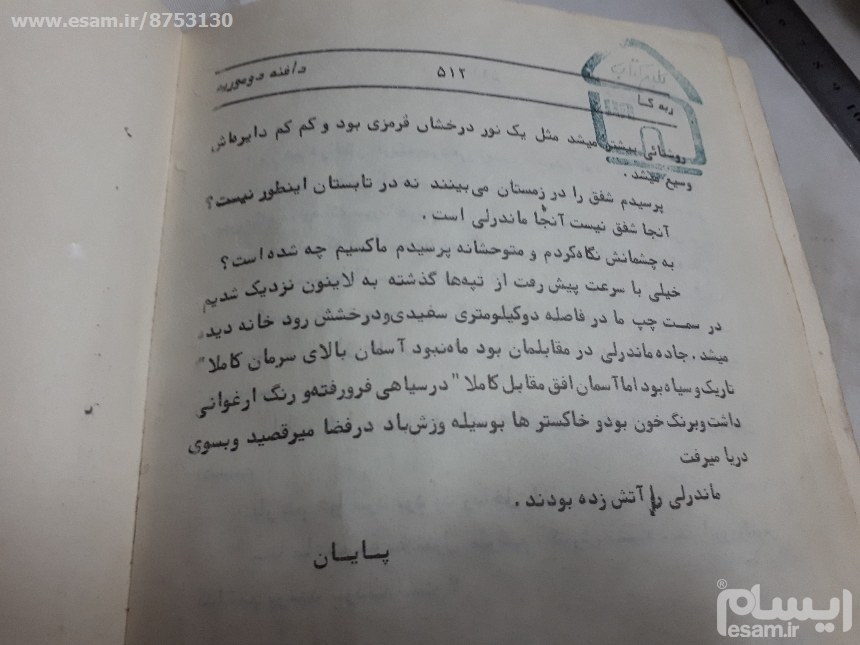 www.esam.ir/8753130
ربه کا ۵۱۲ دافنه دوموریه
روشنائی بیشتر میشد مثل یک نور درخشان قرمزی بود و کم کم دایرهاش
وسیع میشد .
پرسیدم شفق را در زمستان می‌بینند نه در تابستان اینطور نیست ؟
آنجا شفق نیست آنجا ماندرلی است .
به چشمانش نگاه کردم و متوحشانه پرسیدم ماکسیم چه شده است ؟
خیلی با سرعت پیش رفت از تپه‌ها گذشته به لاینون نزدیک شدیم
در سمت چپ ما در فاصله دوکیلومتری سفیدی و درخشش رود خانه دیده
میشد . جاده ماندرلی در مقابلمان بود ماه نبود آسمان بالای سرمان کاملا "
تاریک و سیاه بود اما آسمان افق مقابل کاملا " در سیاهی فرورفته و رنگ ارغوانی
داشت و برنگ خون بود و خاکستر ها بوسیله وزش باد در فضا میرقصید و بسوی
دریا میرفت
ماندرلی را آتش زده بودند .
پایان
ایسام®
esam.ir